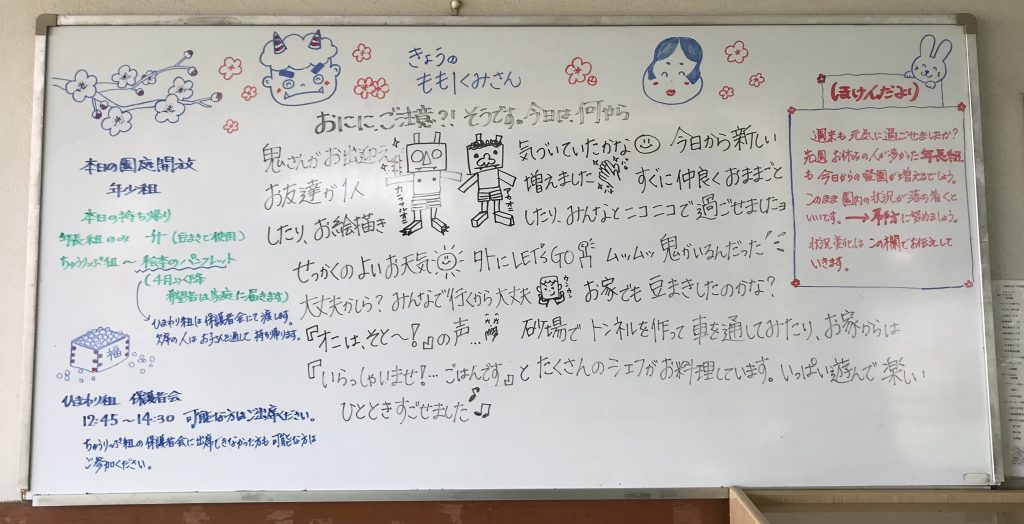 きょうの
ももぐみさん
おにに、ご注意?! そうです。今日は、何やら
鬼さんがお出迎え 気づいていたかな 今日から新しい
お友達が1人 増えました すぐに仲良くおままごと
したり、お絵描き したり、みんなとニコニコで過ごせましたョ
せっかくのよいお天気に 外にLET'S GO ムッムッ 鬼がいるんだった
大丈夫かしら? みんなで行くから大丈夫 お家でも豆まきしたのかな?
『オニは、そと〜!』の声… 砂場でトンネルを作って車を通してみたり、お家からは
『いらっしゃいませ!… ごはんです』とたくさんのシェフがお料理しています。いっぱい遊んで楽しい
ひとときすごせました♪♫
本日の園庭開放
年少組
本日の持ち帰り
年長組のみ 升 (豆まきで使用)
ちゅうりっぷ組〜 絵本のパンフレット
(4月より
希望者は家庭に届きます)
ひまわり組は保護者会にて渡します。
欠席の人はお子さんを通して持ち帰ります。
福
ひまわり組 保護者会
12:45〜14:30 可能な方はご出席ください。
ちゅうりっぷ組の保護者会に出席できなかった方も可能な方は
ご参加ください。
ほけんだより
週末も元気に過ごせましたか?
先週 お休みの人が多かった年長組
も今日からの登園が増えるでしょう。
このまま園内の状況が落ち着くと
いいです。→予防に努めましょう。
状況変化はこの欄でお伝えして
いきます。